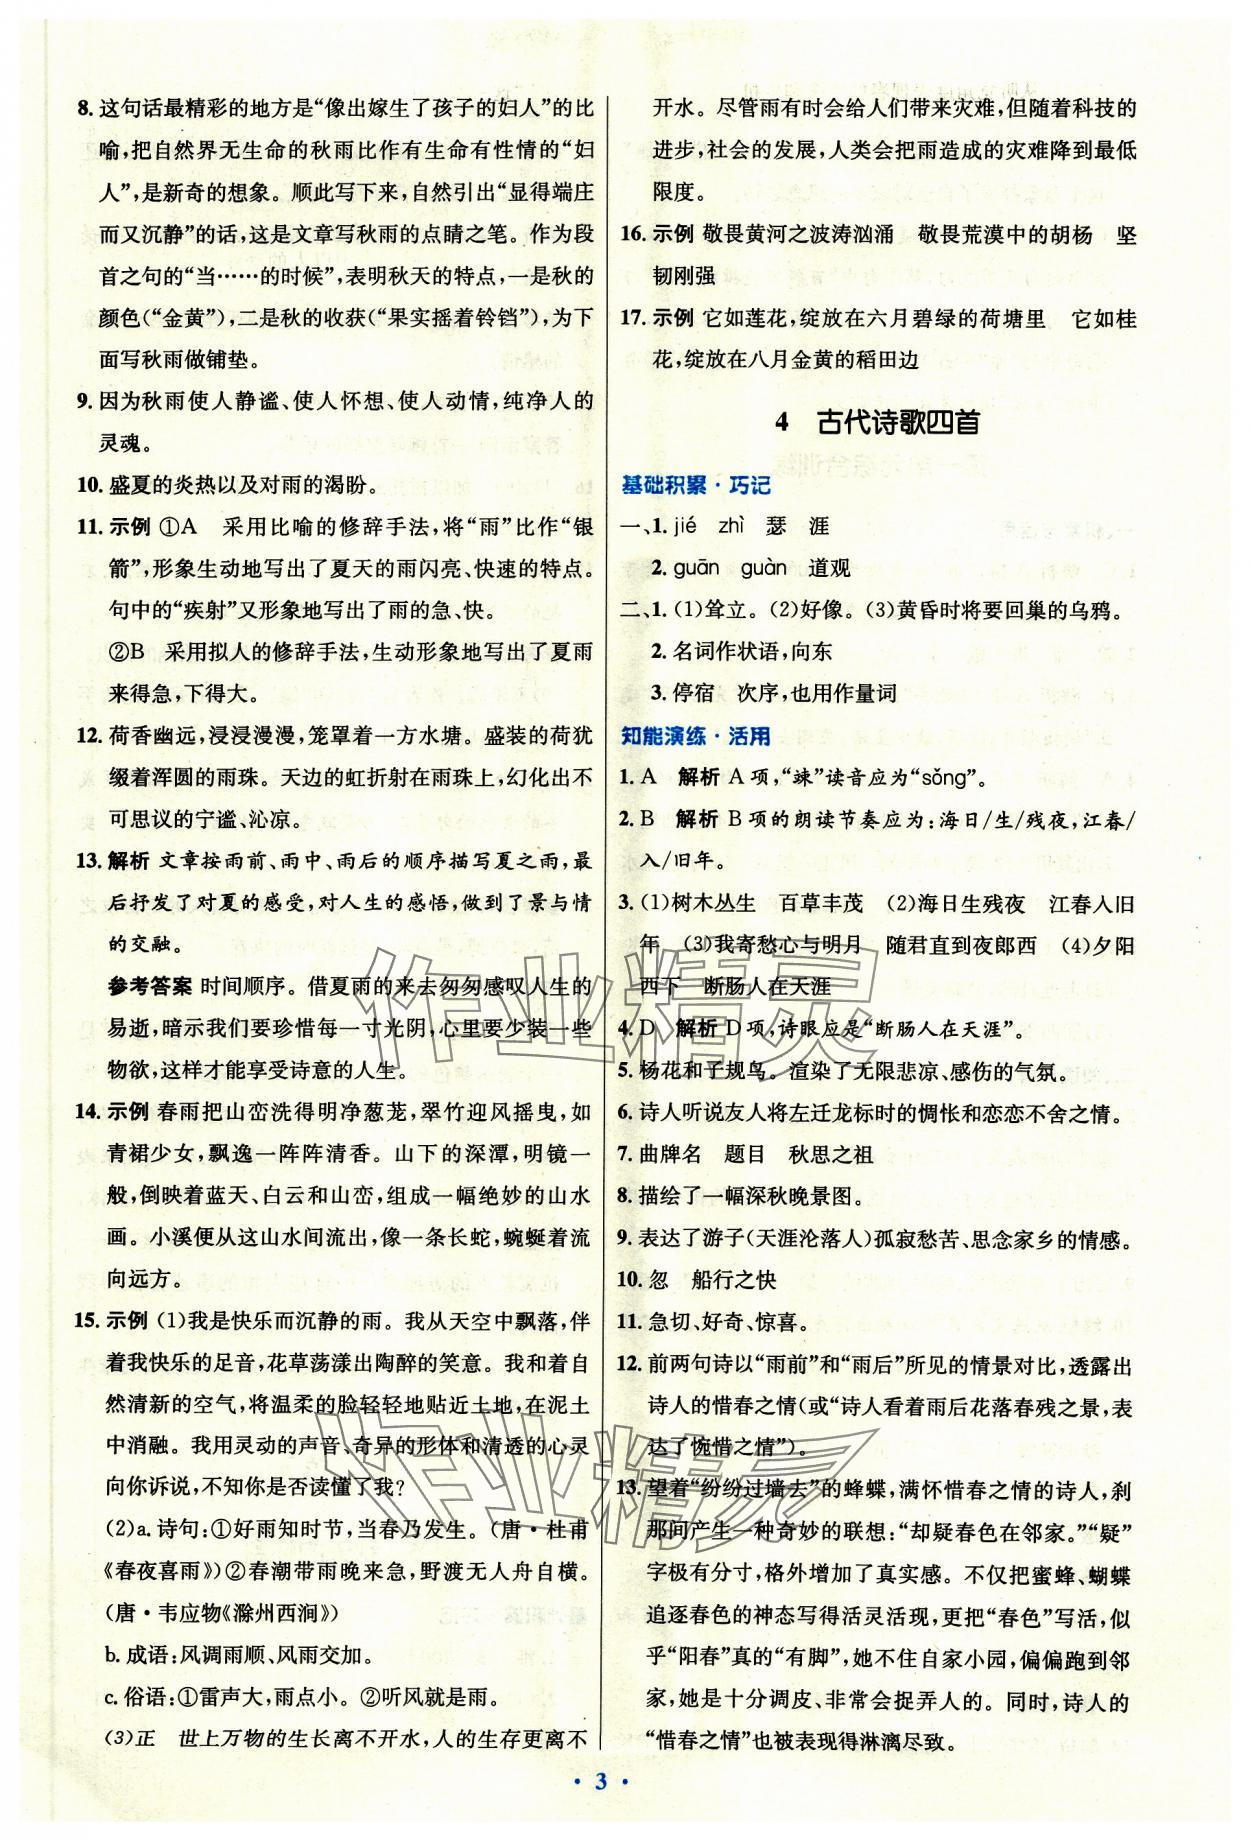 8. 这句话最精彩的地方是“像出嫁生了孩子的妇人”的比
喻,把自然界无生命的秋雨比作有生命有性情的“妇
人”,是新奇的想象。顺此写下来,自然引出“显得端庄
而又沉静”的话,这是文章写秋雨的点睛之笔。作为段
首之句的“当……的时候”,表明秋天的特点,一是秋的
颜色(“金黄”),二是秋的收获(“果实摇着铃铛”),为下
面写秋雨做铺垫。
9. 因为秋雨使人静谧、使人怀想、使人动情,纯净人的
灵魂。
10. 盛夏的炎热以及对雨的渴盼。
11. 示例 ①A 采用比喻的修辞手法,将“雨”比作“银
箭”,形象生动地写出了夏天的雨闪亮、快速的特点。
句中的“疾射”又形象地写出了雨的急、快。
②B 采用拟人的修辞手法,生动形象地写出了夏雨
来得急,下得大。
12. 荷香幽远,浸浸漫漫,笼罩着一方水塘。盛装的荷犹
缀着浑圆的雨珠。天边的虹折射在雨珠上,幻化出不
可思议的宁谧、沁凉。
13. 解析 文章按雨前、雨中、雨后的顺序描写夏之雨,最
后抒发了对夏的感受,对人生的感悟,做到了景与情
的交融。
参考答案 时间顺序。借夏雨的来去匆匆感叹人生的
易逝,暗示我们要珍惜每一寸光阴,心里要少装一些
物欲,这样才能享受诗意的人生。
14. 示例 春雨把山峦洗得明净葱茏,翠竹迎风摇曳,如
青裙少女,飘逸一阵阵清香。山下的深潭,明镜一
般,倒映着蓝天、白云和山峦,组成一幅绝妙的山水
画。小溪便从这山水间流出,像一条长蛇,蜿蜒着流
向远方。
15. 示例 (1)我是快乐而沉静的雨。我从天空中飘落,伴
着我快乐的足音,花草荡漾出陶醉的笑意。我和着自
然清新的空气,将温柔的脸轻轻地贴近土地,在泥土
中消融。我用灵动的声音、奇异的形体和清透的心灵
向你诉说,不知你是否读懂了我?
(2)a. 诗句:①好雨知时节,当春乃发生。(唐·杜甫
《春夜喜雨》)②春潮带雨晚来急,野渡无人舟自横。
(唐·韦应物《滁州西涧》)
b. 成语:风调雨顺、风雨交加。
c. 俗语:①雷声大,雨点小。②听风就是雨。
(3)正 世上万物的生长离不开水,人的生存更离不
开水。尽管雨有时会给人们带来灾难,但随着科技的
进步,社会的发展,人类会把雨造成的灾难降到最低
限度。
16. 示例 敬畏黄河之波涛汹涌 敬畏荒漠中的胡杨 坚
韧刚强
17. 示例 它如莲花,绽放在六月碧绿的荷塘里 它如桂
花,绽放在八月金黄的稻田边
4 古代诗歌四首
基础积累·巧记
一、1. jié zhì 瑟 涯
2. guān guàn 道观
二、1. (1)耸立。(2)好像。(3)黄昏时将要回巢的乌鸦。
2. 名词作状语,向东
3. 停宿 次序,也用作量词
知能演练·活用
1. A 解析 A 项,“竦”读音应为“sǒng”。
2. B 解析 B 项的朗读节奏应为:海日/生/残夜,江春/
入/旧年。
3. (1)树木丛生 百草丰茂 (2)海日生残夜 江春入旧
年 (3)我寄愁心与明月 随君直到夜郎西 (4)夕阳
西下 断肠人在天涯
4. D 解析 D 项,诗眼应是“断肠人在天涯”。
5. 杨花和子规鸟。渲染了无限悲凉、感伤的气氛。
6. 诗人听说友人将左迁龙标时的惆怅和恋恋不舍之情。
7. 曲牌名 题目 秋思之祖
8. 描绘了一幅深秋晚景图。
9. 表达了游子(天涯沦落人)孤寂愁苦、思念家乡的情感。
10. 忽 船行之快
11. 急切、好奇、惊喜。
12. 前两句诗以“雨前”和“雨后”所见的情景对比,透露出
诗人的惜春之情(或“诗人看着雨后花落春残之景,表
达了惋惜之情”)。
13. 望着“纷纷过墙去”的蜂蝶,满怀惜春之情的诗人,刹
那间产生一种奇妙的联想:“却疑春色在邻家。”“疑”
字极有分寸,增加了真实感。不仅把蜜蜂、蝴蝶
追逐春色的神态写得活灵活现,更把“春色”写活,似
乎“阳春”真的“有脚”,她不住自家小园,偏偏跑到邻
家,她是十分调皮、非常会捉弄人的。同时,诗人的
“惜春之情”也被表现得淋漓尽致。
作业精灵
作业精灵
· 3 ·